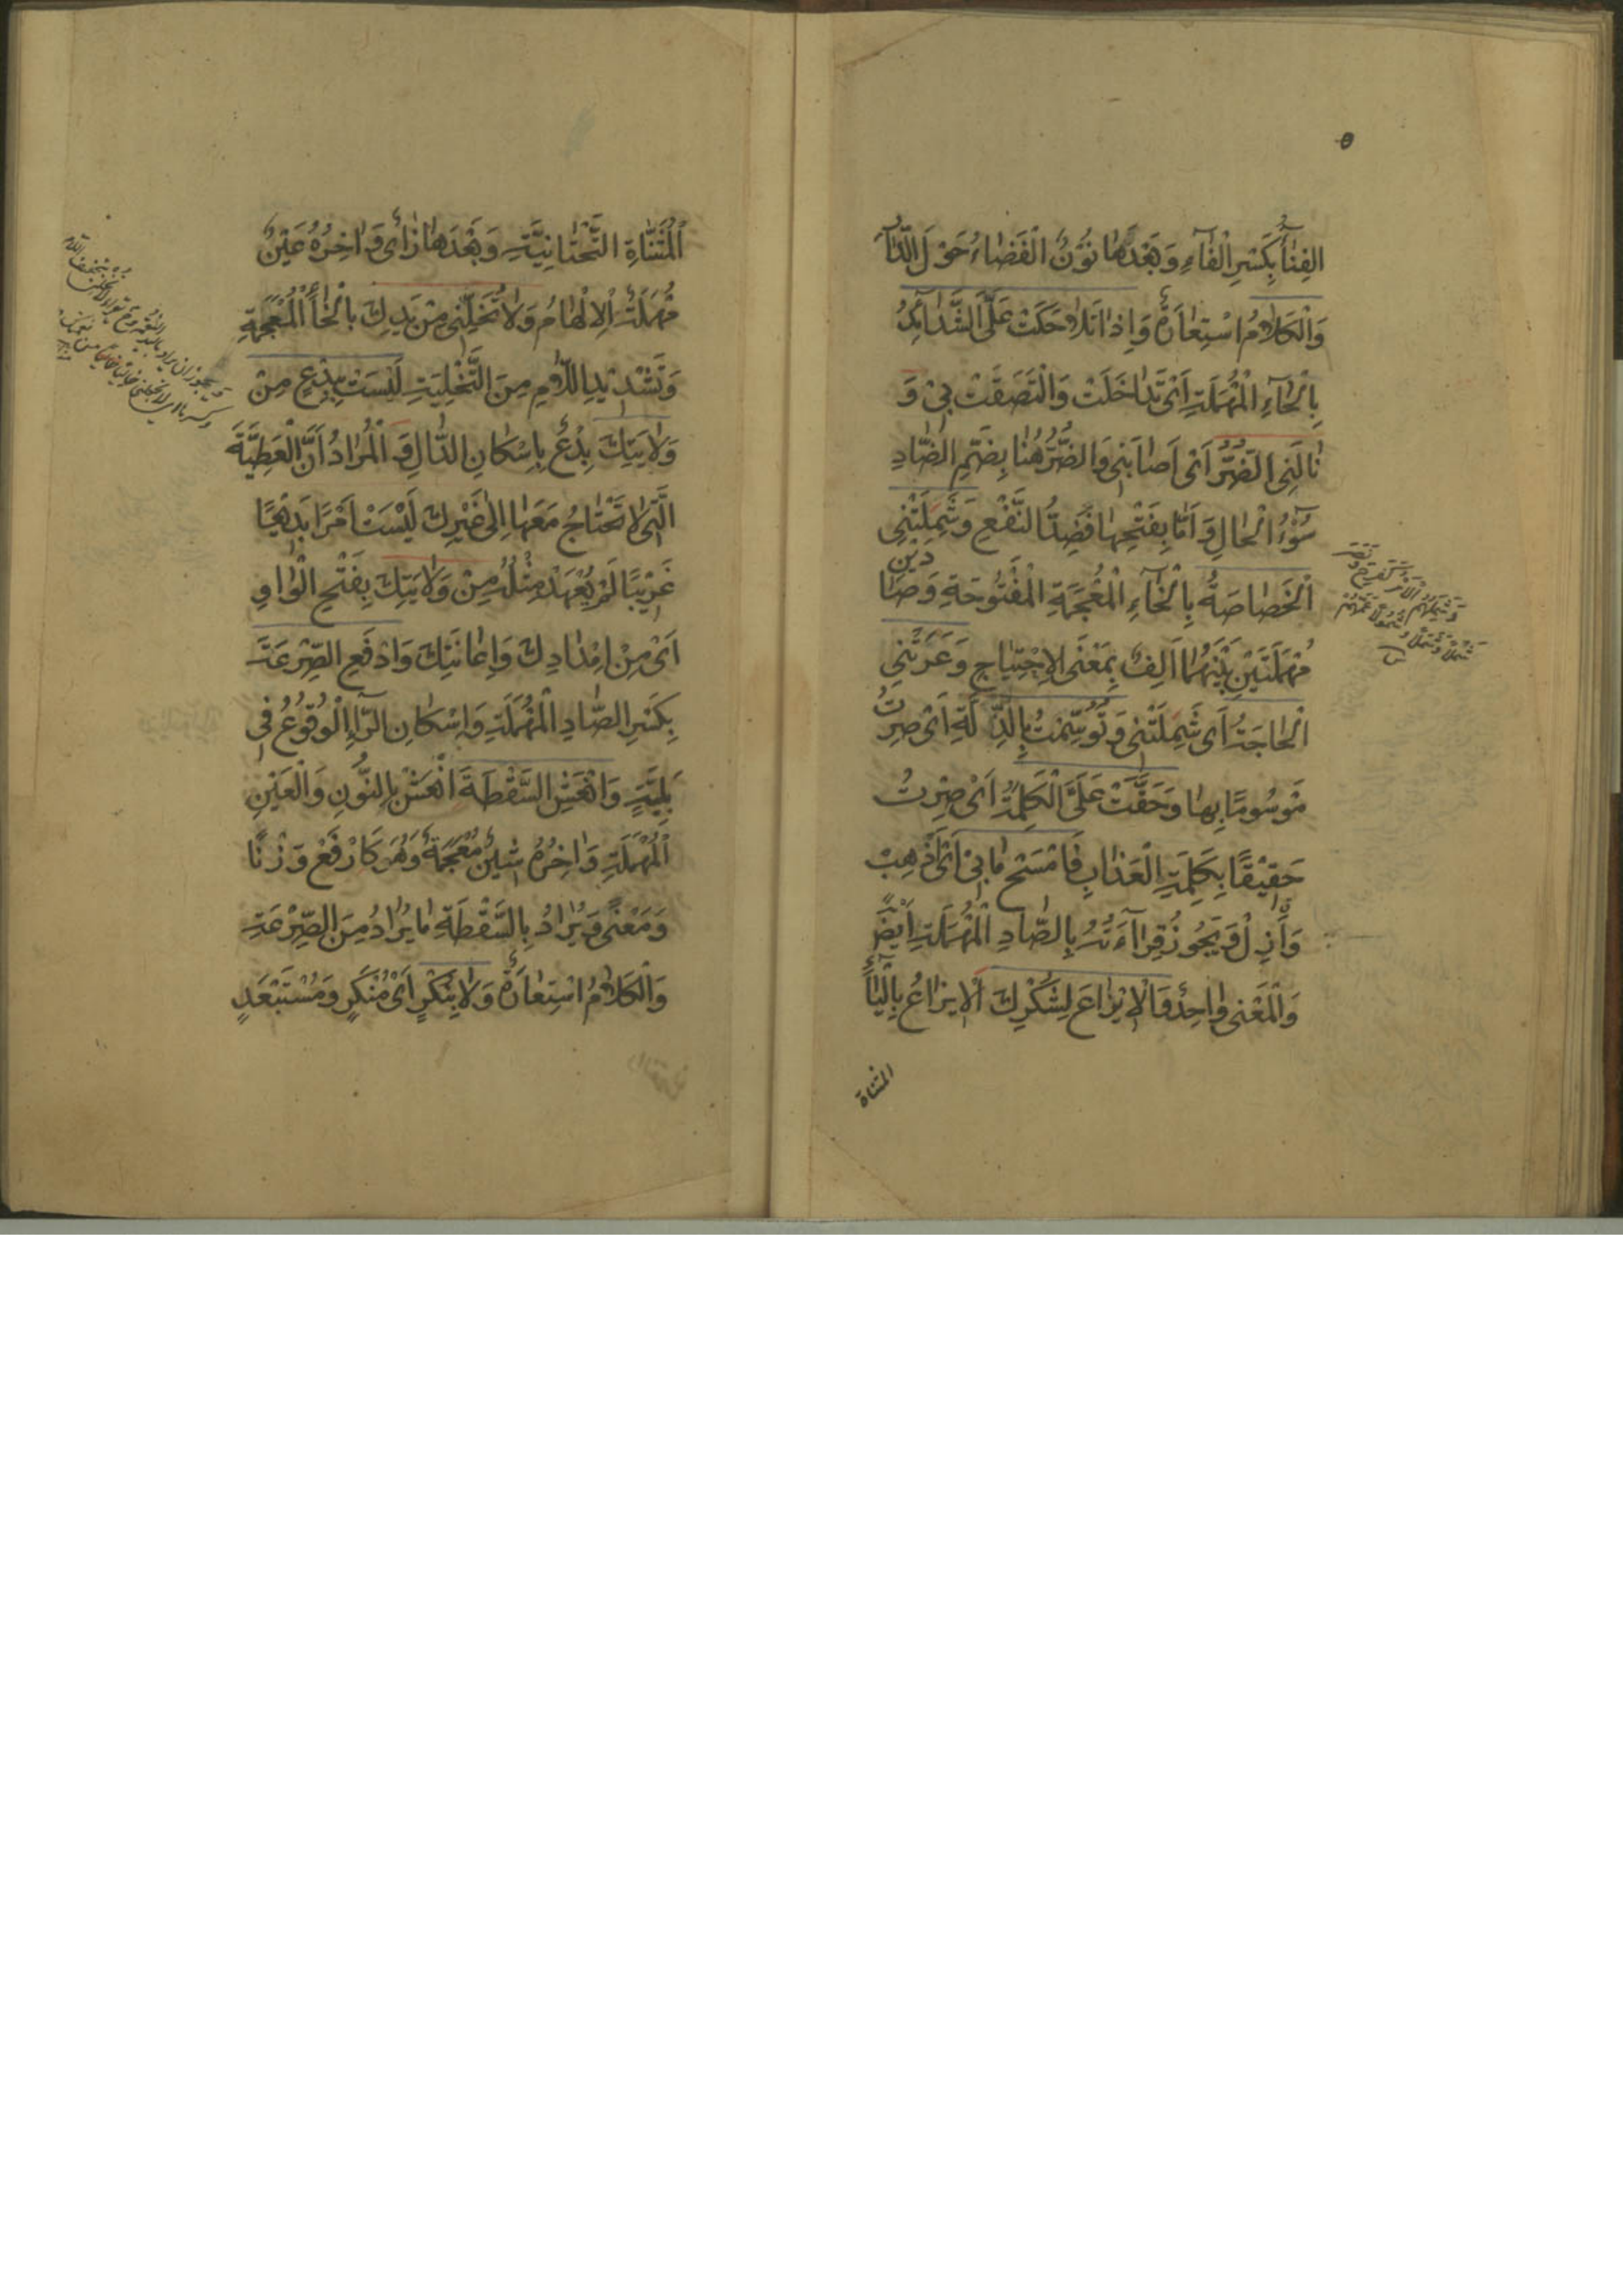 الفِنٰآءُ بِكَسْرِ الْفٰآءِ وَبَعْدَهٰا نُوْنٌ الْفَضٰاءُ حَوْلَ الدّٰارِ
وَالْكَلٰامُ اسْتِعٰارَةٌ وَاِذٰا تَلٰاحَكَتْ عَلَىَّ الشَّدٰآئِدُ
بِالْحٰآءِ الْمُهْمَلَةِ اَىْ تَدٰاخَلَتْ وَالْتَصَقَتْ بِىْ وَ
نٰالَنِى الضُّرُّ اَىْ اَصٰابَنِى وَالضُّرُّ هُنٰا بِضَمِّ الضّٰادِ
سُوْءُ الْحٰالِ وَ اَمّٰا بِفَتْحِهٰا فَضِدُّ النَّفْعِ وَشَمِلَتْنِى
الْخَصٰاصَةُ بِالْخٰآءِ الْمُعْجَمَةِ الْمَفْتُوْحَةِ وَصٰا
دين
مُهْمَلَتَيْنِ بَيْنَهُمٰا اَلِفٌ بِمَعْنَى الاِحْتِيٰاجِ وَعَرَتْنِى
الْحٰاجَةُ اَى شَمِلَتْنِى وَتُوُسِّمْتُ بِالذِّلَّةِ اَىْ صِرْتُ
مَوْسُومًا بِهٰا وَحَقَّتْ عَلَىَّ الْكَلِمَةُ اَىْ صِرْتُ
حَقِيْقًا بِكَلِمَةِ الْعَذٰابِ فَامْسَحْ مٰا بِىْ اَىْ اَذْهِبْ
وَاَزِلْ وَ يَجُوزُ قِرٰآءَتُهُ بِالصّٰادِ الْمُهْمَلَةِ اَيْضًا
وَالْمَعْنى وٰاحِدٌ وَالْاِيْزٰاعَ لِشُكْرِكَ الْاِيزٰاعُ بِالْيٰآءِ
المثناة
الْمُثَنّٰاةِ التَّحْتٰانِيَّةِ وَبَعْدَهٰا زٰاىٌ وَاٰخِرُهُ عَيْنٌ
مُهْمَلَةٌ الْاِلْهٰامُ وَلٰا تُخَلِّنِى مِنْ يَدِكَ بِالْخٰآءِ الْمُعْجَمَةِ
وَتَشْدِيْدِ اللّٰامِ مِنَ التَّخْلِيَةِ لَيْسَتْ بِبِدْعٍ مِنْ
وَلٰايَتِكَ بِدْعٌ بِاِسْكٰانِ الدّٰالِ وَ الْمُرٰادُ اَنَّ الْعَطِيَّةَ
الَّتِى لٰا تَحْتٰاجُ مَعَهٰا اِلٰى غَيْرِكَ لَيْسَتْ اَمْرًا بَدِيْعًا
غَرِيْبًا لَمْ يُعْهَدْ مِثْلُهُ مِنْ وَلٰايَتِكَ بِفَتْحِ الْوٰاوِ
اَىْ مِنْ اِمْدٰادِكَ وَاِعٰانَتِكَ وَادْفَعِ الصِّرْعَةَ
بِكَسْرِ الصّٰادِ الْمُهْمَلَةِ وَاِسْكٰانِ الرّٰآءِ الْوُقُوْعُ فِى
بَلِيَّةٍ وَانْعَشِ السَّقْطَةَ انْعَشْ بِالنُّونِ وَالْعَيْنِ
الْمُهْمَلَةِ وَاٰخِرُهُ شِيْنٌ مُعْجَمَةٌ وَهُوَ كَارْفَعْ وَزْنًا
وَمَعْنًى وَ يُرٰادُ بِالسَّقْطَةِ مٰا يُرٰادُ مِنَ الصِّرْعَةِ
وَالْكَلٰامُ اسْتِعٰارَةٌ وَلٰا بِنُكْرٍ اَىْ مُنْكَرٍ وَمُسْتَبْعَدٍ